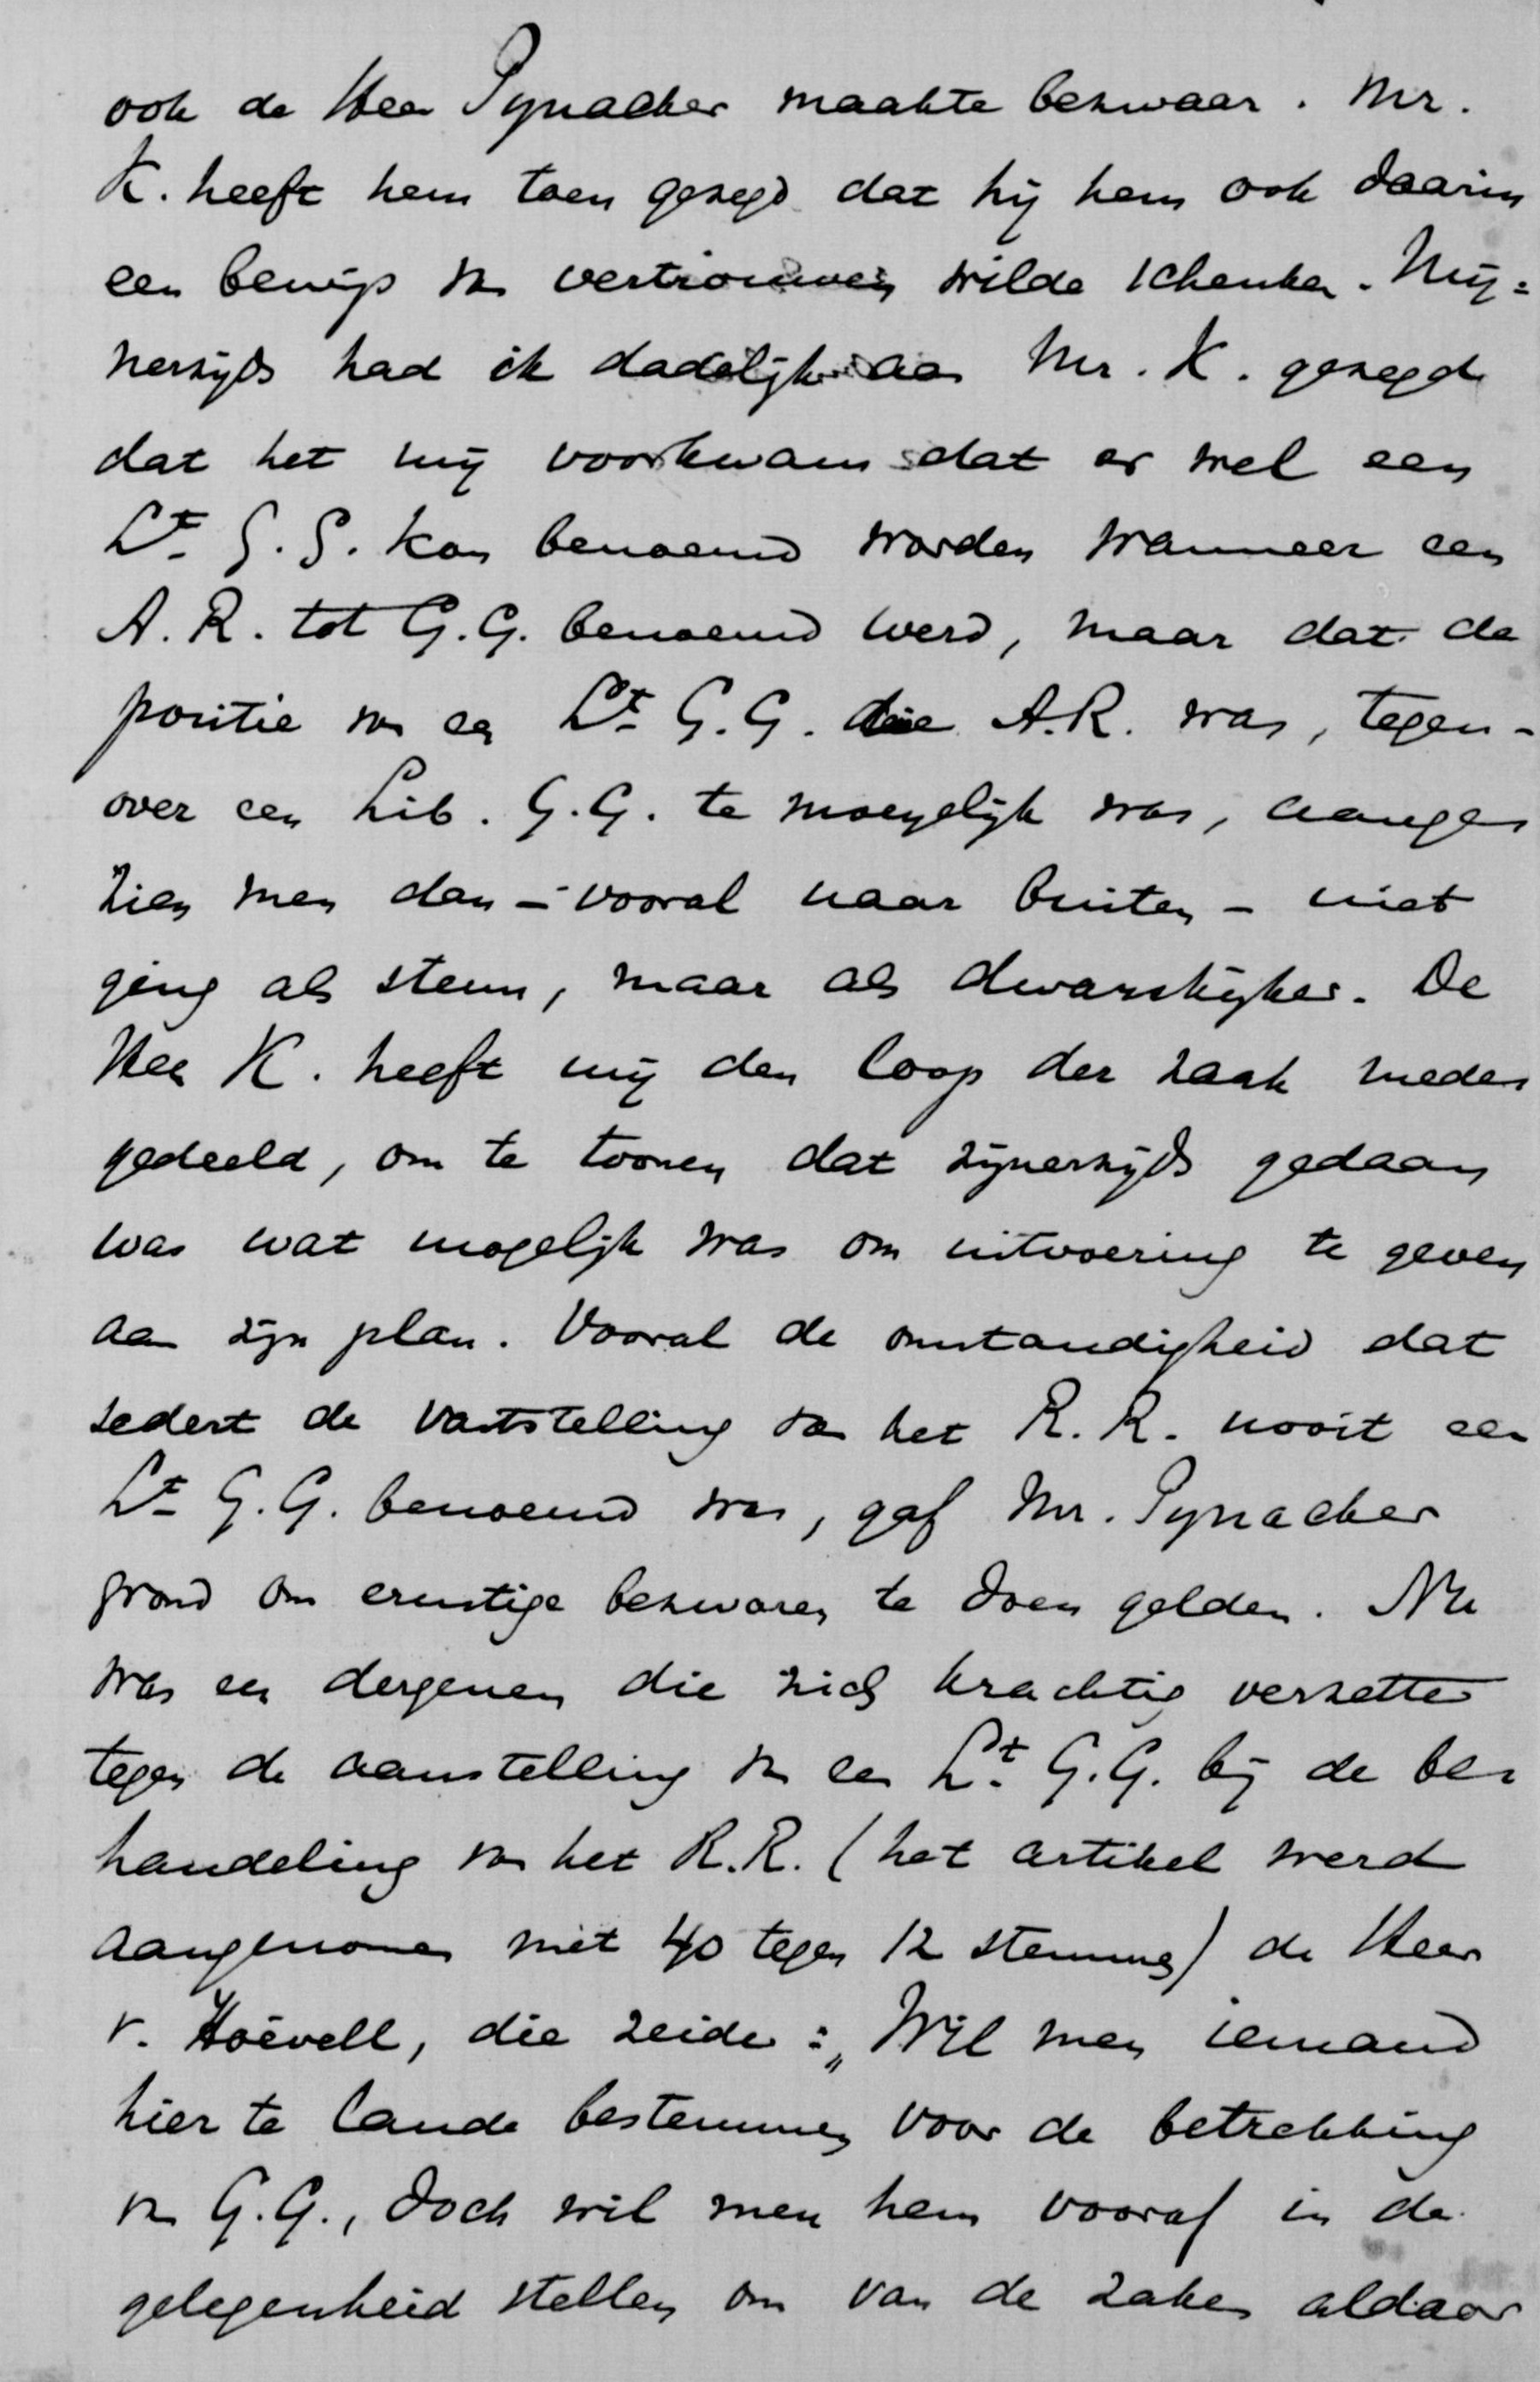 ook de Heer Pynacker maakte bezwaar. Mr.
K. heeft hem toen gezegd dat hij hem ook daarin
een bewijs v. vertrouwen wilde schenken. Mij=
nerzijds had ik dadelijk aan Mr. K. gezegd
dat het mij voorkwam dat er wel een
Lt. G.G. kon benoemd worden wanneer een
A.R. tot G.G. benoemd werd, maar dat de
positie v. een Lt. G.G. die A.R. was, tegen-
over een Lib. G.G. te moeyelijk was, aange-
zien men dan - vooral naar buiten - niet
ging als steun, maar als dwarskijker. De
Heer K. heeft mij den loop der zaak mede-
gedeeld, om te toonen dat zijnerzijds gedaan
was wat mogelijk was om uitvoering te geven
aan zijn plan. Vooral de omstandigheid dat
sedert de vaststelling van het R.R. nooit een
Lt. G.G. benoemd was, gaf Mr. Pynacker
grond om ernstige bezwaren te doen gelden. Nu
was een dergenen die zich krachtig verzette
tegen de aanstelling v. een Lt. G.G. bij de be-
handeling v. het R.R. (het artikel werd
aangenomen met 40 tegen 12 stemmen) de Heer
v. Hoëvell, die zeide: „Wil men iemand
hier te lande bestemmen voor de betrekking
v. G.G., doch wil men hem vooraf in de
gelegenheid stellen om van de zaken aldaar